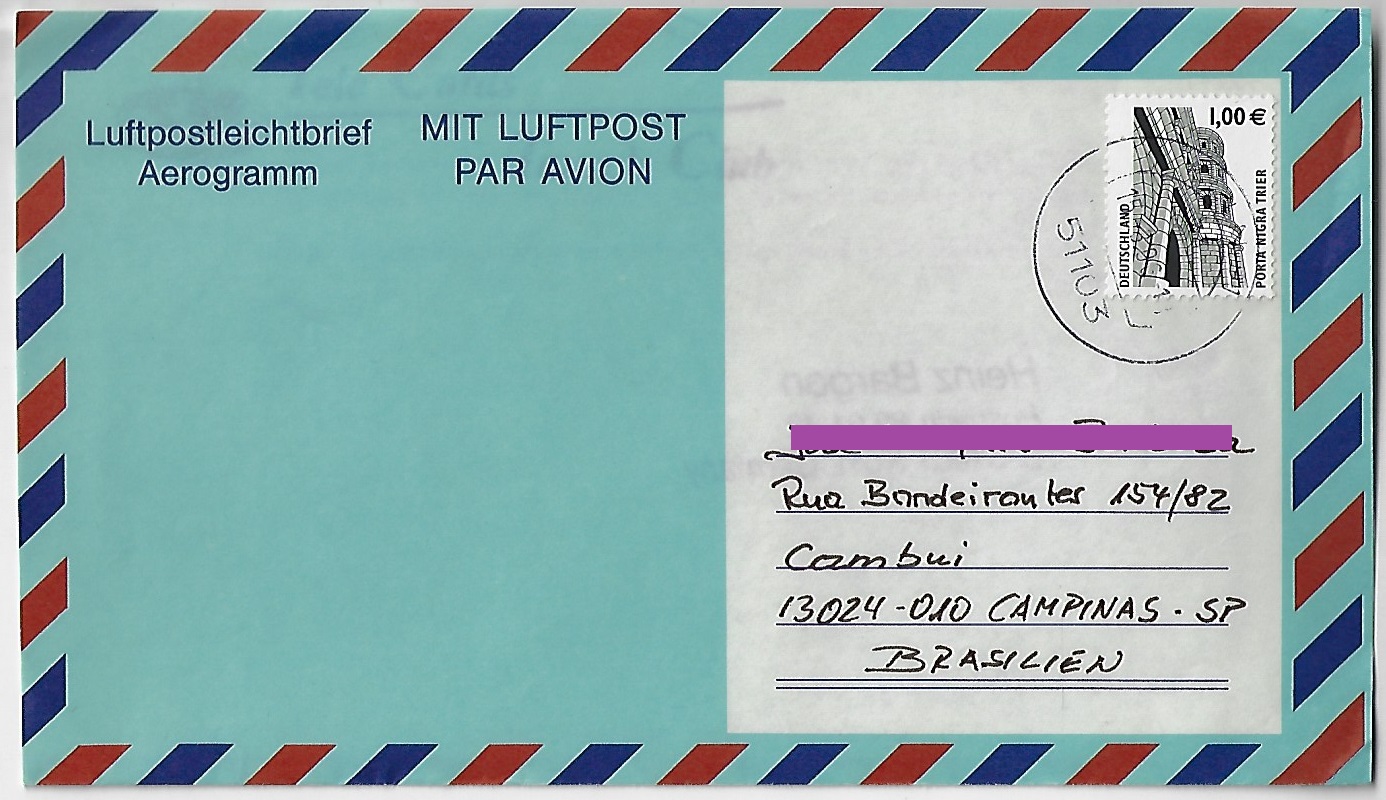 Luftpostleichtbrief
Aerogramm
MIT LUFTPOST
PAR AVION
1,00 €
DEUTSCHLAND
PORTA NIGRA TRIER
51103
Heinz Bargon
Rua Bandeirantes 154/82
Cambui
13024-010 CAMPINAS · SP
BRASILIEN